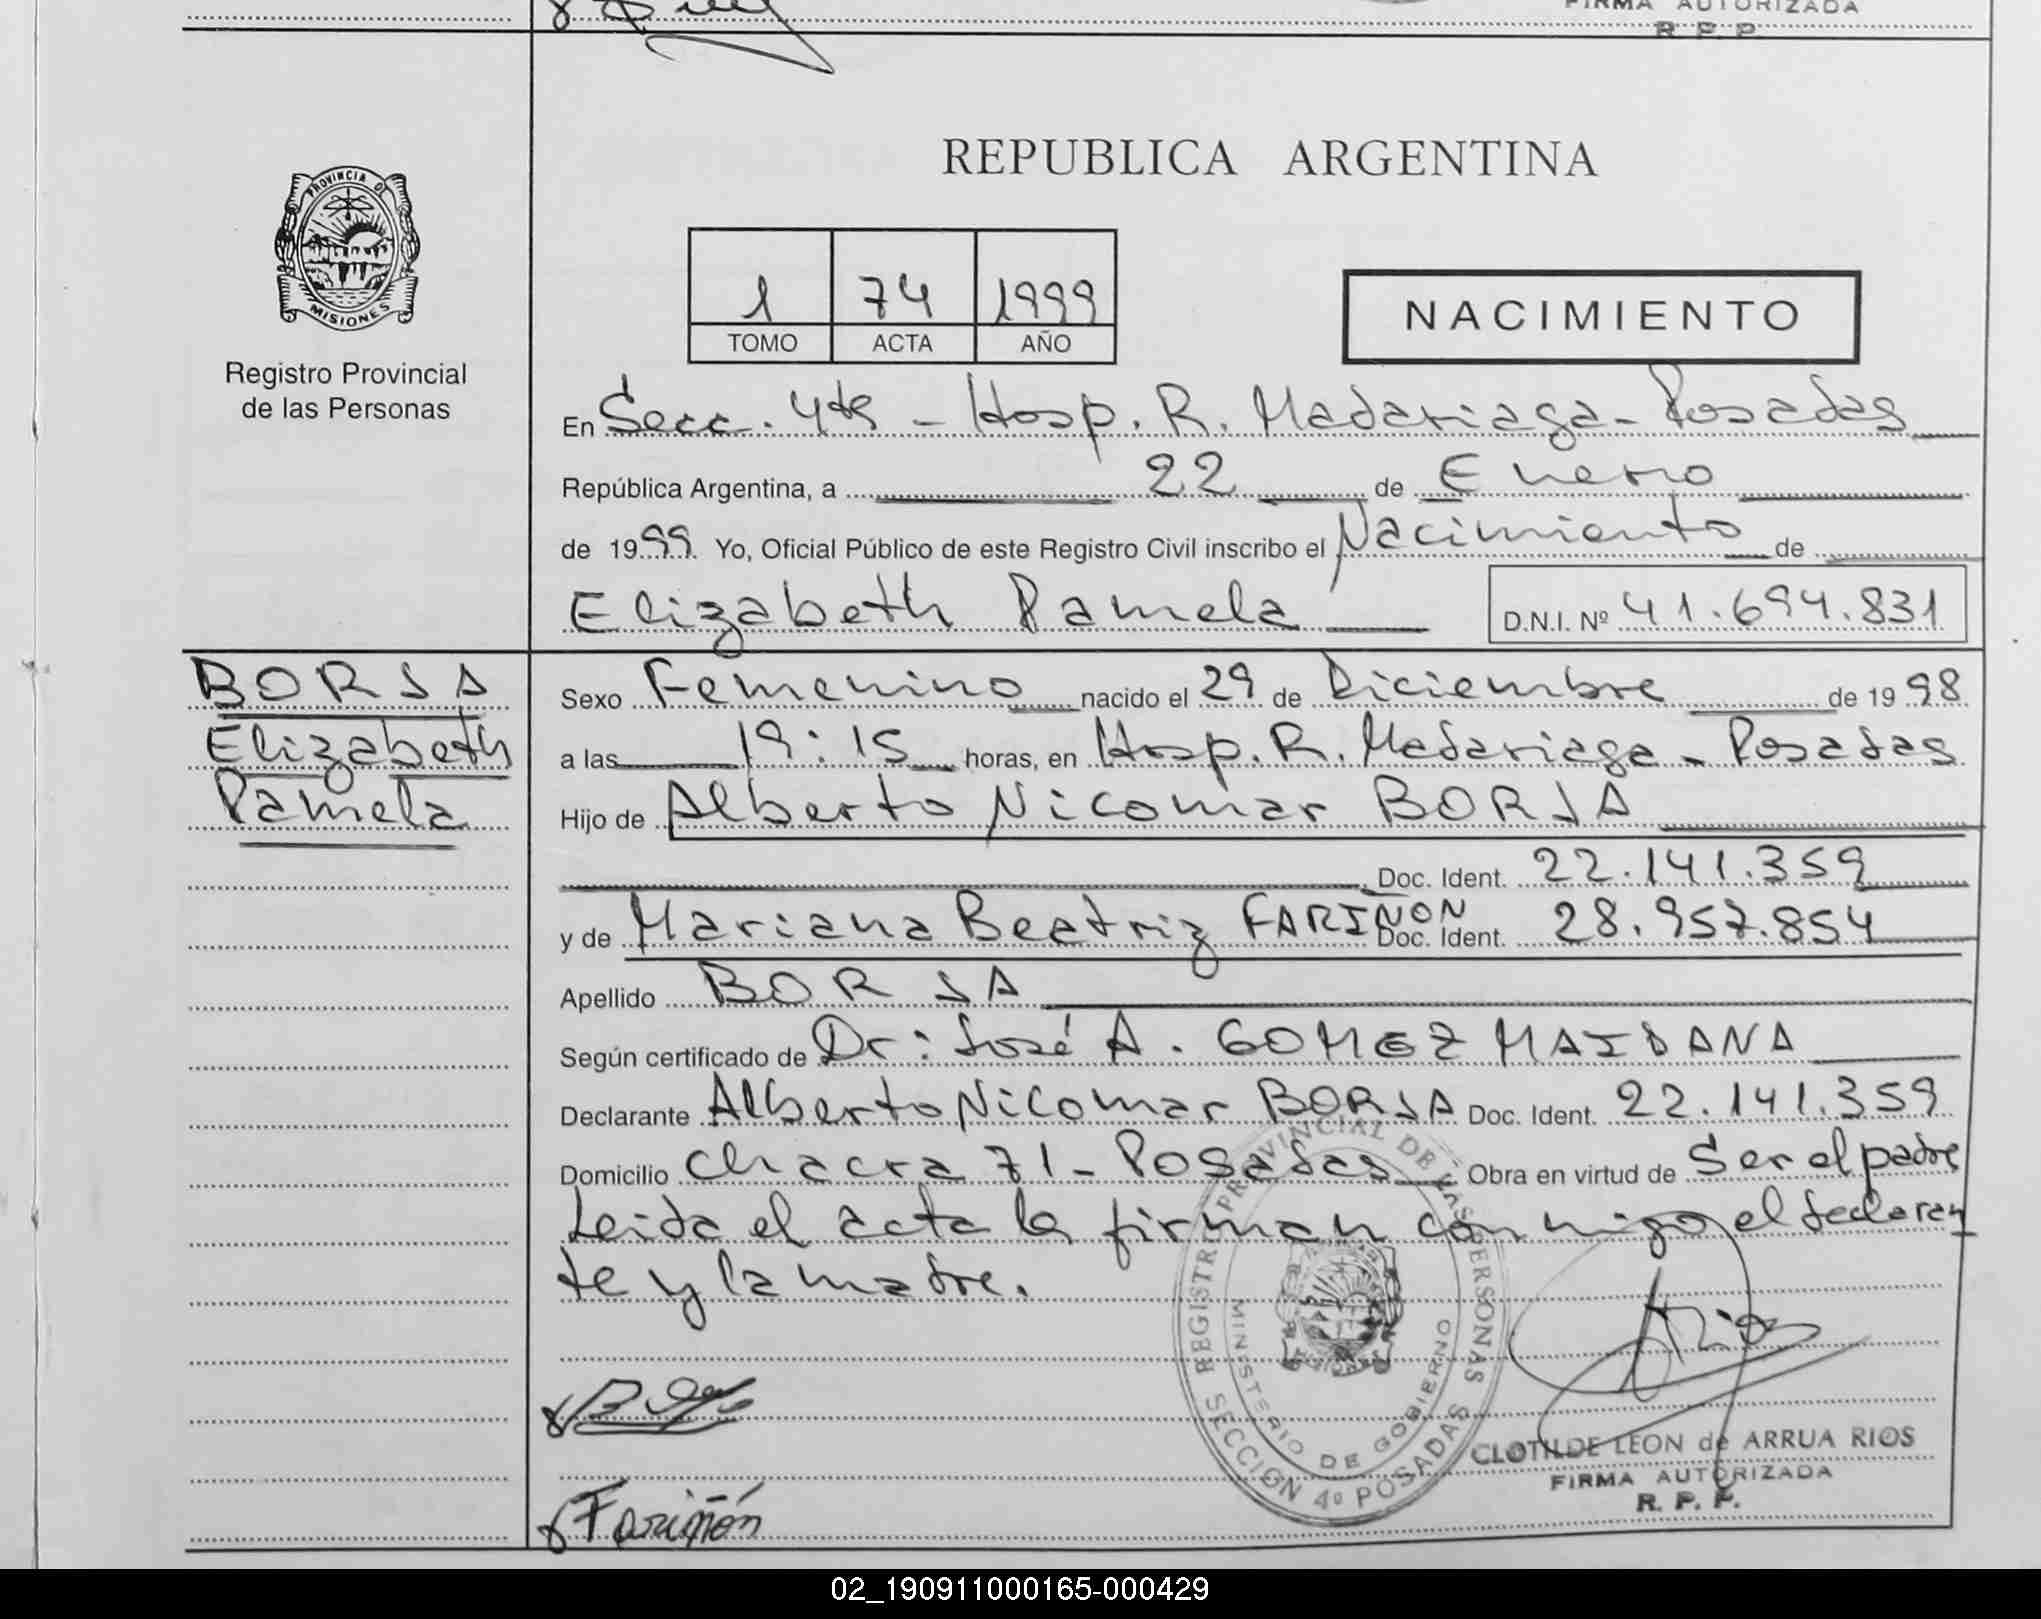 FIRMA AUTORIZADA
R. P. P.
PROVINCIA DE
MISIONES
Registro Provincial
de las Personas
REPUBLICA ARGENTINA
1 74 1999
TOMO ACTA AÑO
NACIMIENTO
En Secc. 4ta - Hosp. R. Madariaga - Posadas
República Argentina, a 22 de Enero
de 1999 Yo, Oficial Público de este Registro Civil inscribo el Nacimiento de
Elizabeth Pamela D.N.I. Nº 41.694.831
BORJA
Elizabeth
Pamela
Sexo Femenino nacido el 29 de Diciembre de 1998
a las 19:15 horas, en Hosp. R. Madariaga - Posadas
Hijo de Alberto Nicomar BORJA
Doc. Ident. 22.141.359
y de Mariana Beatriz FARIÑON Doc. Ident. 28.957.854
Apellido BORJA
Según certificado de Dr: José A. GOMEZ MAIDANA
Declarante Alberto Nicomar BORJA Doc. Ident. 22.141.359
Domicilio Chacra 71 - Posadas Obra en virtud de Ser el padre
Leida el acta la firman conmigo el declaran
te y la madre.
REGISTRO PROVINCIAL DE LAS PERSONAS
MINISTERIO DE GOBIERNO
SECCION 4º POSADAS
Rios
CLOTILDE LEON de ARRUA RIOS
FIRMA AUTORIZADA
R. P. P.
Fariñón
02_190911000165-000429